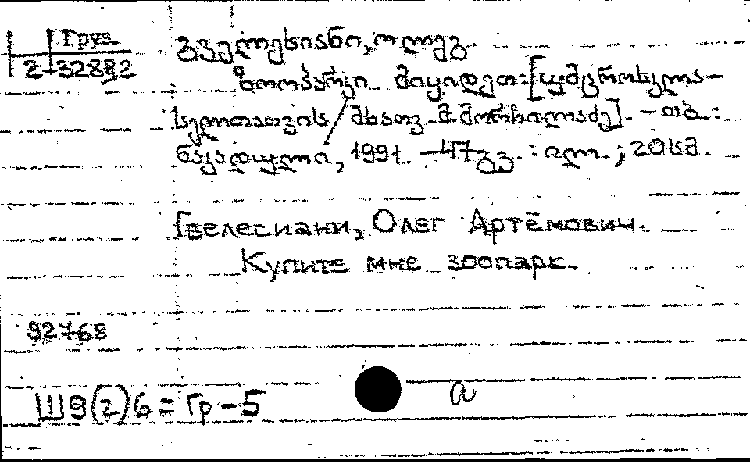 Груз
2-32882
გველესიანი, ოლეგ
ზოოპარკი მიყიდეთ: [უმცროსკლა-
სელთათვის / მხატვ. მ. მორჩილაძე]. - თბ.:
ნაკადული, 1991. - 47 გვ. : ილ. ; 20 სმ.
Гвелесиани, Олег Артёмович.
Купите мне зоопарк.
92768
Ш9(2)6 = Гр - 5
а